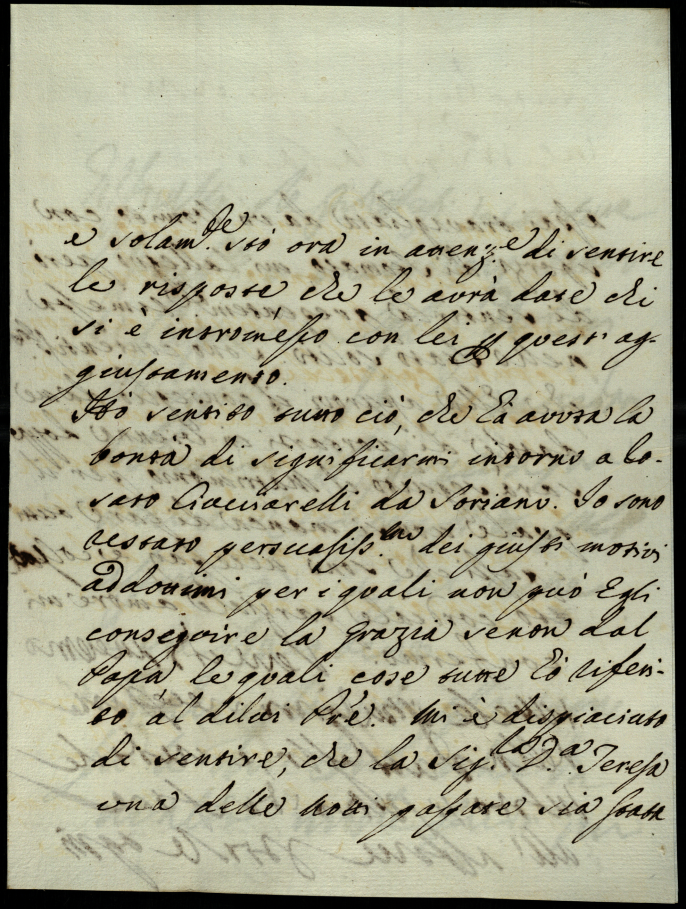 e solam.te stò ora in attenz.e di sentire
le risposte che le avrà date chi
si è intromesso con lei p questi ag-
giustamento.
Hò sentito tutto ciò, che Ella avuta la
bontà di significarmi intorno a Lo-
sato Ciacciarelli da Soriano. Io sono
restato persuasiss.mo dei giusti motivi
addottimi per i quali non può Egli
conseguire la grazia senon dal
Papa le quali cose tutte hò riferi-
to al di lui P're. Mi è dispiaciuto
di sentire, che la Sig.la D.a Teresa
una delle notti passate sia stata